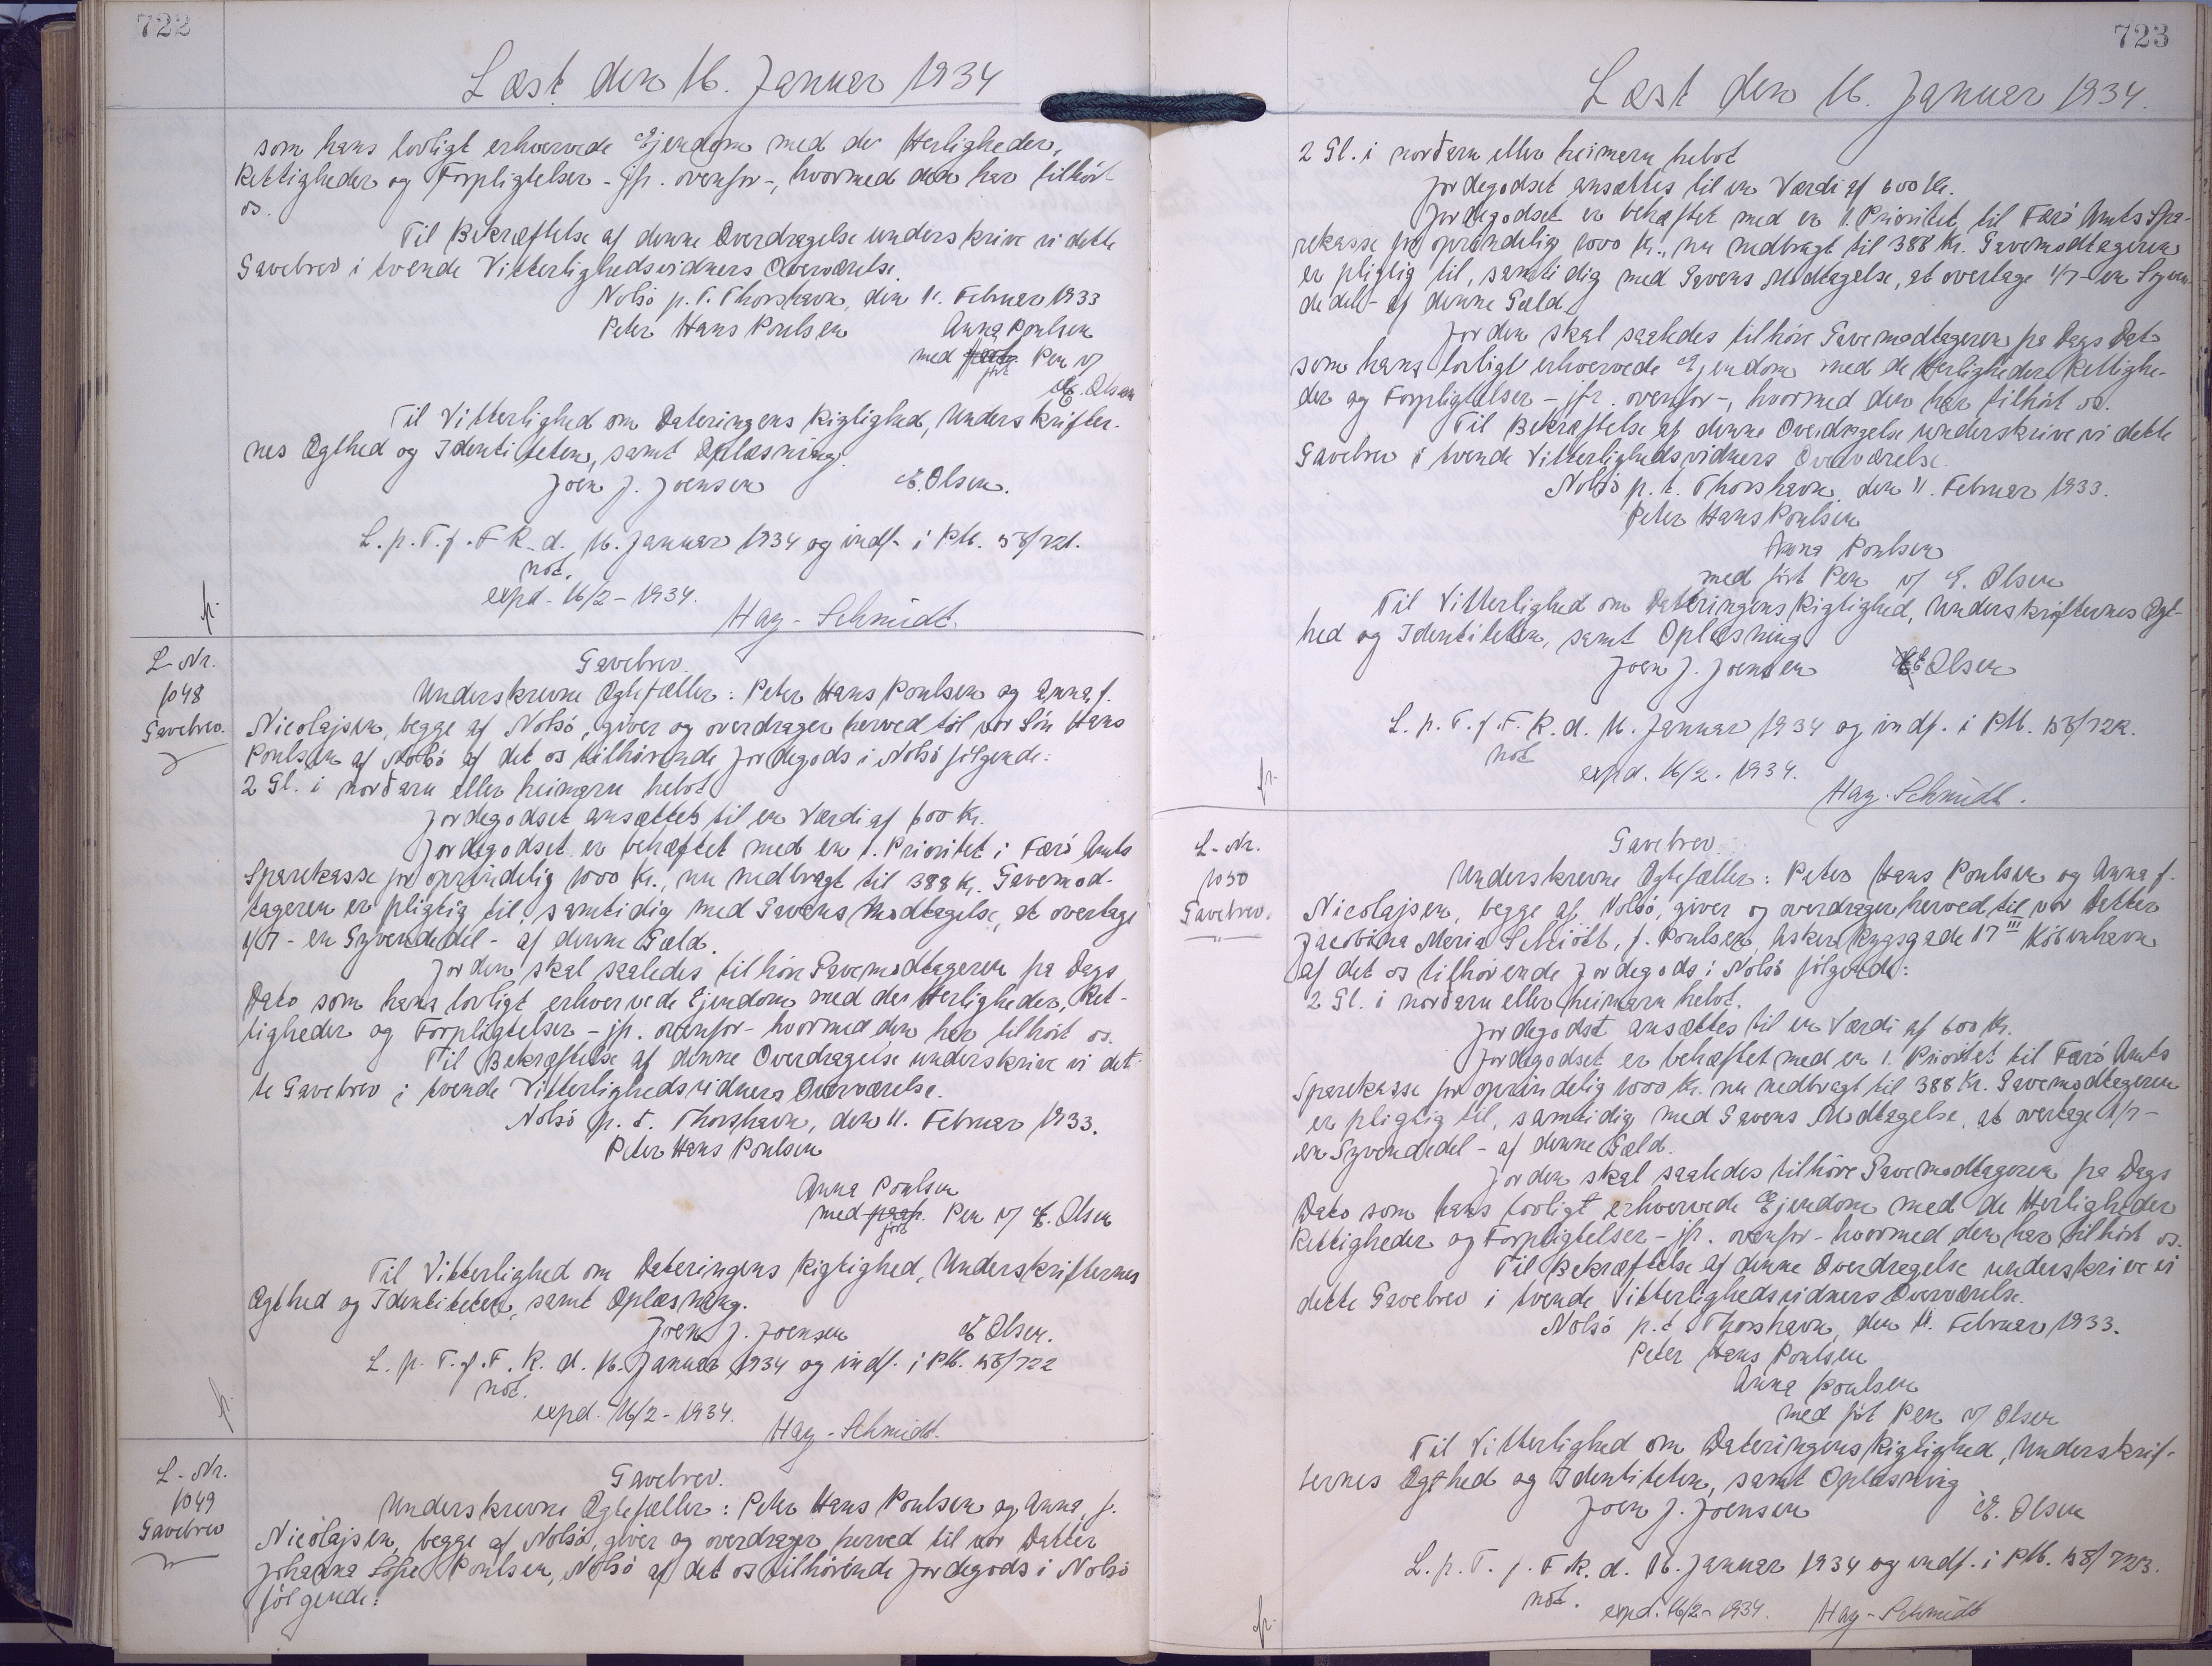 722
Læst den 16. Januar 1934
som hans lovligt erhvervede Ejendom med de Herligheder,
Rettigheder og Forpligtelser - jfr. ovenfor -, hvormed den har tilhört
os.
Til Bekræftelse af denne Overdragelse underskrive vi dette
Gavebrev i tvende Vitterlighedsvidners Overværelse.
Nolsö p. T. Thorshavn, den 11. Februar 1933
Peter Hans Poulsen Anna Poulsen
med fört Pen v/
E. Olsen
Til Vitterlighed om Dateringens Rigtighed, Underskrifter-
nes Ægthed og Identiteten, samt Oplæsning.
Joen J. Joensen E. Olsen.
L. p. T. f. F. R. d. 16. Januar 1934 og indf. i PM. 58/721.
not.
expd. 16/2 - 1934.
Hay-Schmidt.
L-Nr.
1048
Gavebrev.
Gavebrev.
Underskrevne Ægtefæller: Peter Hans Poulsen og Anna f.
Nicolajsen, begge af Nolsö, giver og overdrager herved til vor Sön Hans
Poulsen af Nolsö af det os tilhörende Jordegods i Nolsö fölgende:
2 Gl. i norðaru eller heimaru helvt
Jordegodset ansættes til en Værdi af 600 Kr.
Jordegodset er behæftet med en 1. Prioritet i Færö Amts
Sparekasse for oprindelig 1000 Kr., nu nedbragt til 388 Kr. Gavemod-
tageren er pligtig til, samtidig med Gavens Modtagelse, at overtage
1/7 - en Syvendedel - af denne Gæld.
Jorden skal saaledes tilhöre Gavemodtageren fra Dags
Dato som hans lovligt erhvervede Ejendom med de Herligheder, Ret-
tigheder og Forpligtelser - jfr. ovenfor - hvormed den har tilhört os.
Til Bekræftelse af denne Overdragelse underskrive vi det-
te Gavebrev i tvende Vitterlighedsvidners Overværelse.
Nolsö p. t. Thorshavn, den 11. Februar 1933.
Peter Hans Poulsen
Anna Poulsen
med fört Pen v/ E. Olsen
Til Vitterlighed om Dateringens Rigtighed, Underskrifternes
Ægthed og Identiteten, samt Oplæsning.
Joen J. Joensen E Olsen.
L. p. T. f. F. R. d. 16. Januar 1934 og indf. i PM. 58/722
not.
expd. 16/2 - 1934.
Hay-Schmidt.
L-Nr.
1049
Gavebrev
Gavebrev.
Underskrevne Ægtefæller: Peter Hans Poulsen og Anna, f.
Nicolajsen, begge af Nolsö, giver og overdrager herved til vor Datter
Johanna Sofie Poulsen, Nolsö af det os tilhörende Jordegods i Nolsö
fölgende:
723
Læst den 16. Januar 1934.
2 Gl. i norðaru eller heimaru helvt
Jordegodset ansættes til en Værdi af 600 Kr.
Jordegodset er behæftet med en 1. Prioritet til Færö Amts Spa-
rekasse for oprindelig 1000 Kr., nu nedbragt til 388 Kr. Gavemodtageren
er pligtig til, samtidig med Gavens Modtagelse, at overtage 1/7 - en Syven-
dedel - af denne Gæld.
Jorden skal saaledes tilhöre Gavemodtageren fra Dags Dato
som hans lovligt erhvervede Ejendom med de Herligheder Rettighe-
der og Forpligtelser - jfr. ovenfor -, hvormed den har tilhört os.
Til Bekræftelse af denne Overdragelse underskrive vi dette
Gavebrev i tvende Vitterlighedsvidners Overværelse.
Nolsö p. t. Thorshavn, den 11. Februar 1933.
Peter Hans Poulsen
Anna Poulsen
med fört Pen v/ E. Olsen
Til Vitterlighed om Dateringens Rigtighed, Underskrifternes Ægt-
hed og Identiteten, samt Oplæsning
Joen J. Joensen E Olsen
L. p. T. f. F. R. d. 16. Januar 1934 og indf. i PM. 58/722.
not
expd. 16/2. 1934.
Hay-Schmidt.
L-Nr.
1050
Gavebrev.
Gavebrev.
Underskrevne Ægtefæller: Peter Hans Poulsen og Anna f.
Nicolajsen, begge af Nolsö, giver og overdrager herved til vor Datter
Jacobina Maria Schiött, f. Poulsen, Asker Rygsgade 17 III Köbenhavn
af det os tilhörende Jordegods i Nolsö fölgende:
2 Gl. i norðaru eller heimaru helvt.
Jordegodset ansættes til en Værdi af 600 Kr.
Jordegodset er behæftet med en 1. Prioritet til Færö Amts
Sparekasse for oprindelig 1000 Kr. nu nedbragt til 388 Kr. Gavemodtageren
er pligtig til, samtidig med Gavens Modtagelse, at overtage 1/7 -
en Syvendedel - af denne Gæld.
Jorden skal saaledes tilhöre Gavemodtageren fra Dags
Dato som hans lovligt erhvervede Ejendom med de Herligheder
Rettigheder og Forpligtelser - jfr. ovenfor - hvormed den har tilhört os.
Til Bekræftelse af denne Overdragelse underskrive vi
dette Gavebrev i tvende Vitterlighedsvidners Overværelse.
Nolsö p. t. Thorshavn, den 11. Februar 1933.
Peter Hans Poulsen
Anna Poulsen
med fört Pen v/ Olsen
Til Vitterlighed om Dateringens Rigtighed, Underskrif-
ternes Ægthed og Identiteten, samt Oplæsning
Joen J. Joensen E. Olsen
L. p. T. f. F. R. d. 16. Januar 1934 og indf. i PM. 58/723.
not.
expd. 16/2 - 1934. Hay-Schmidt